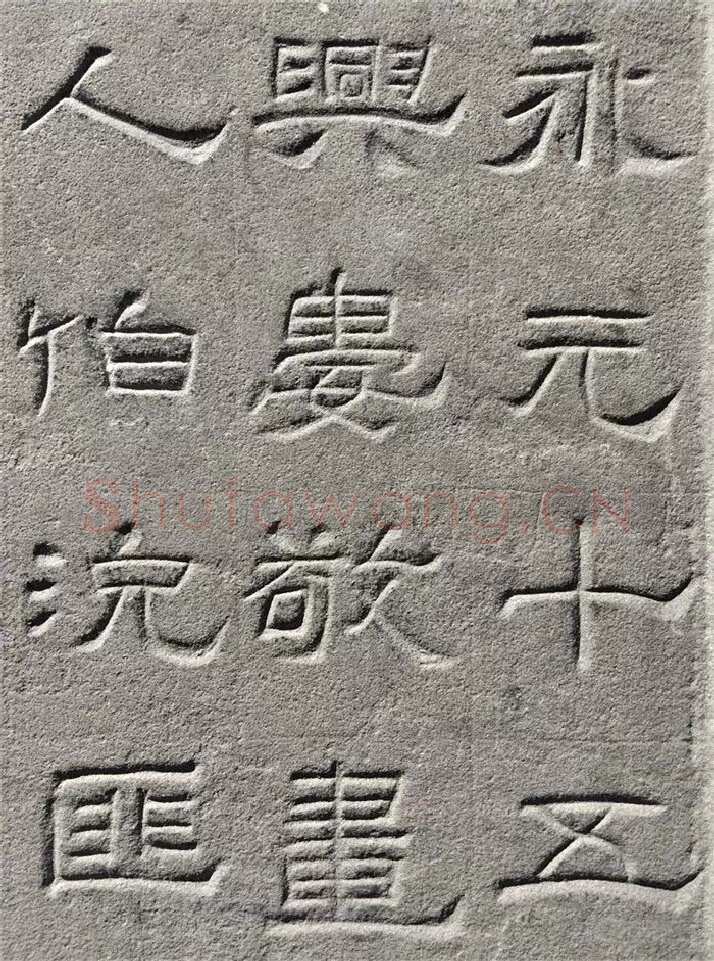 永元十五
興婁敬畫
人伯沈匪
Shufawang.CN